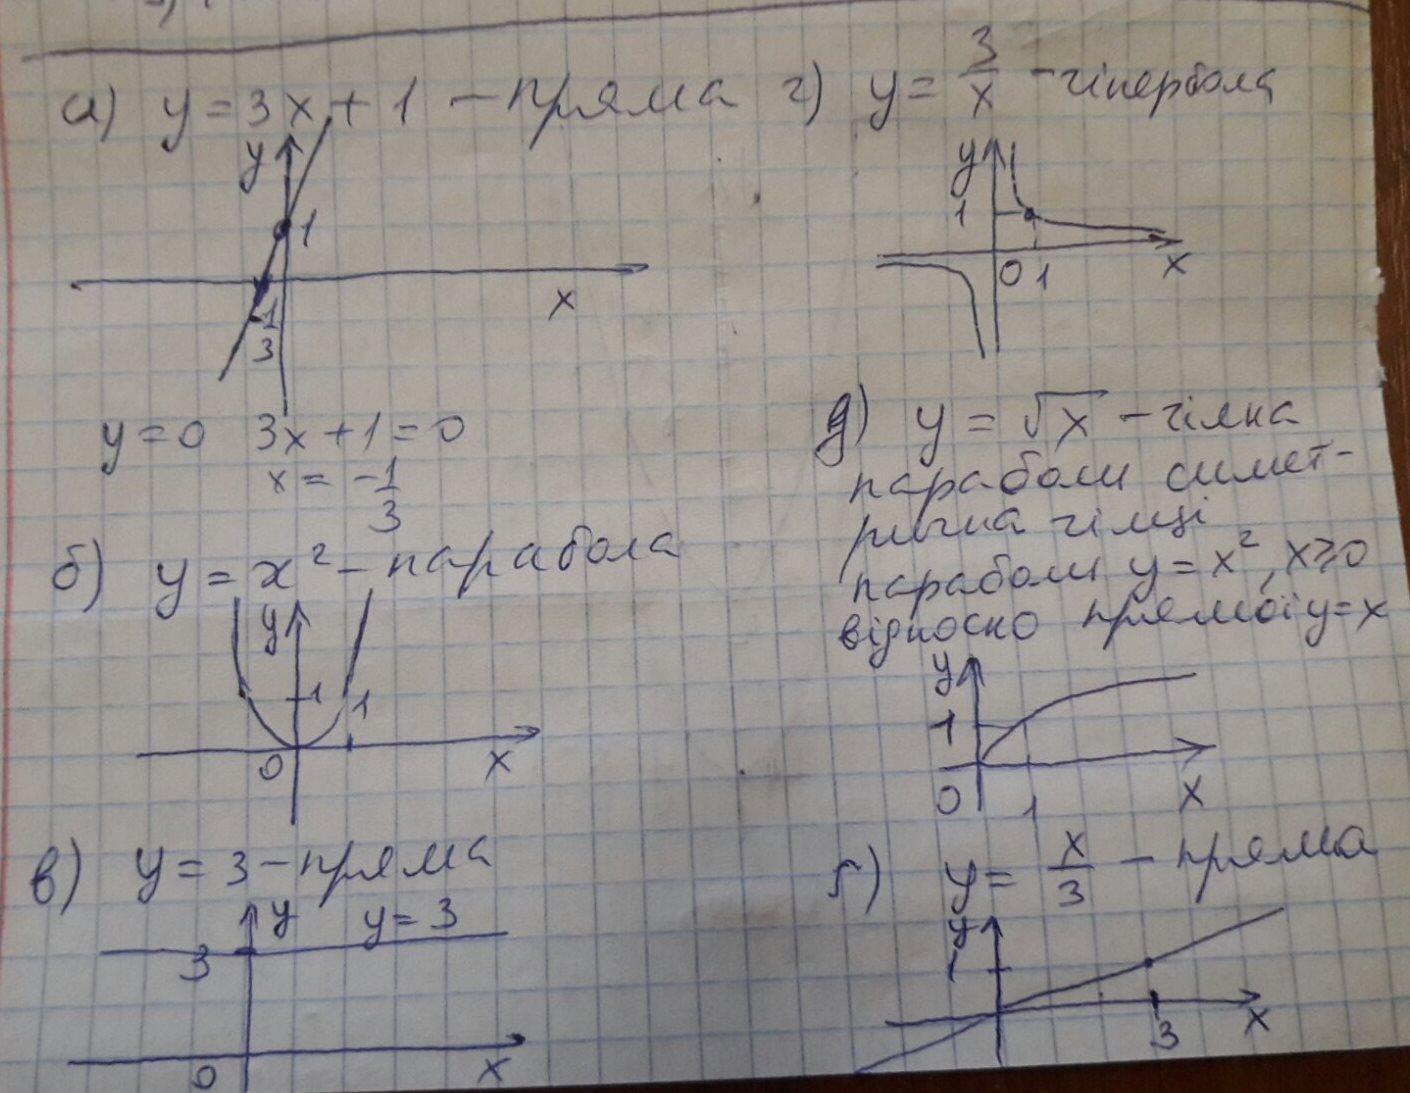 а) y = 3x + 1 – пряма
y
1
x
-1/3
y = 0   3x + 1 = 0
x = -1/3
б) y = x² – парабола
y
1 1
0 x
в) y = 3 – пряма
y y = 3
3
0 x
г) y = 3/x – гіпербола
y
1
0 1 x
д) y = √x – гілка
параболи симет-
рична гілці
параболи y = x², x ≥ 0
відносно прямої y = x
y
1
0 1 x
ґ) y = x/3 – пряма
y
1
3 x